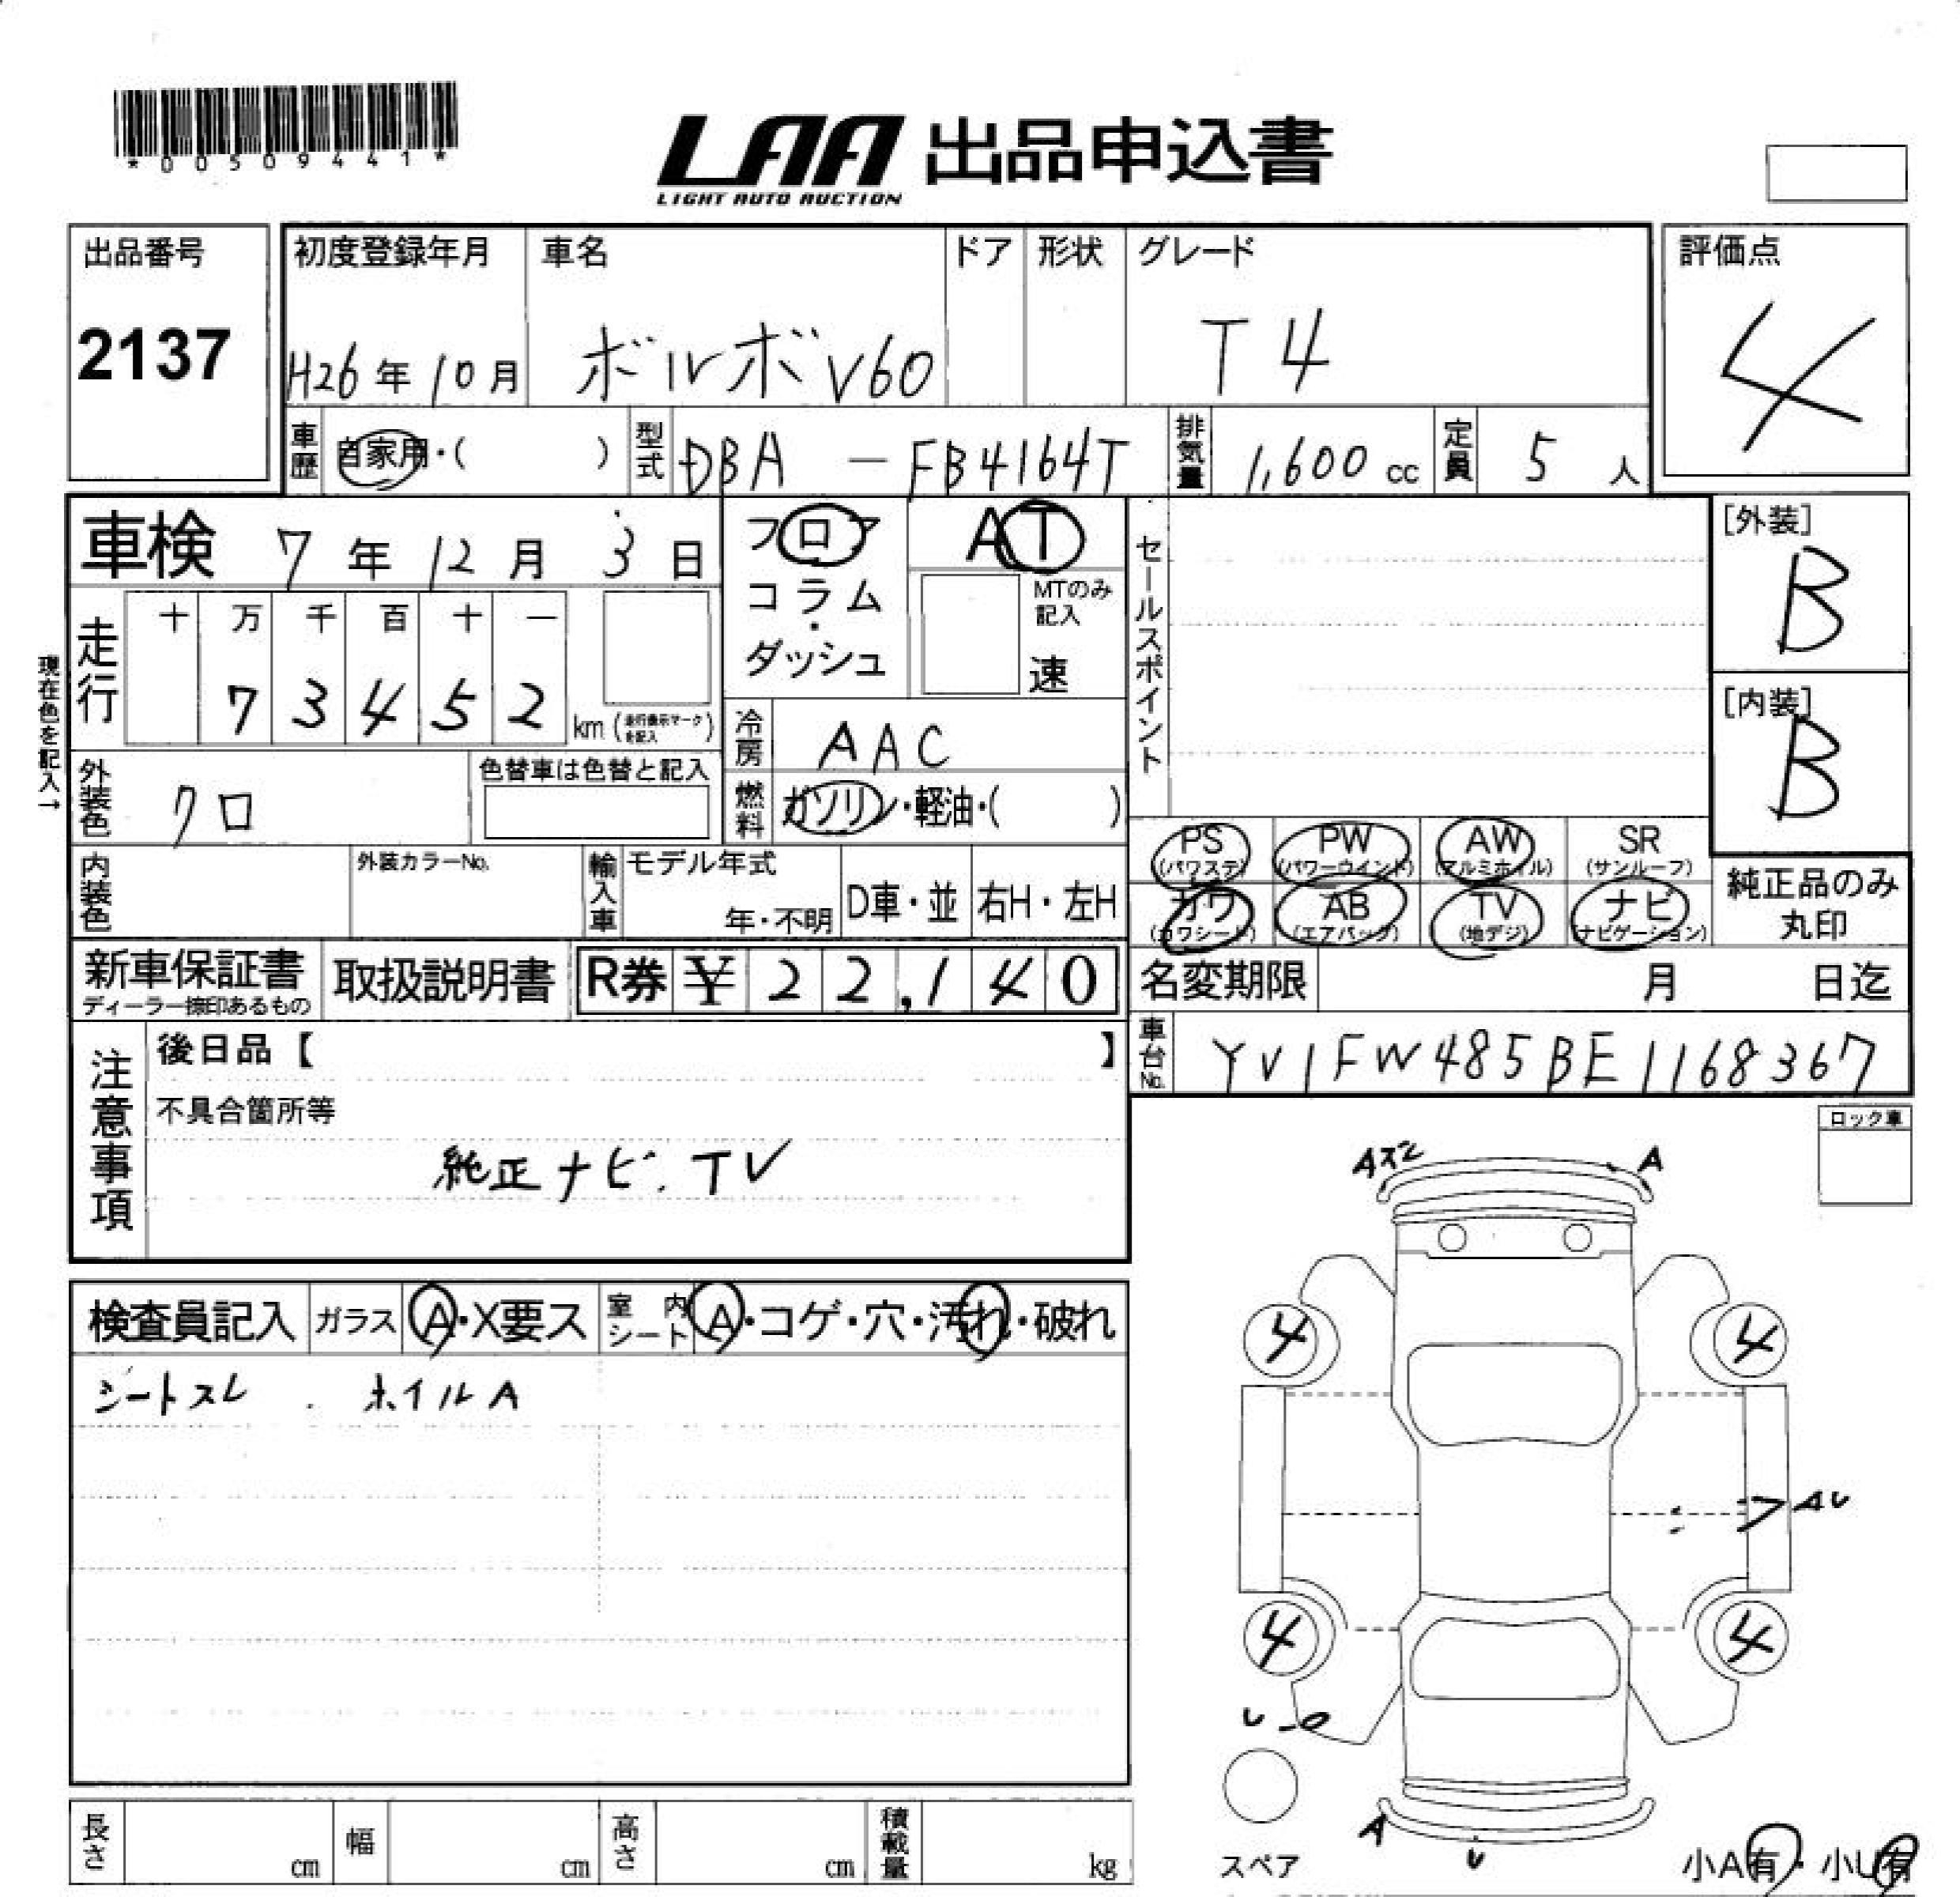 *00509441*
LAA 出品申込書
LIGHT AUTO AUCTION
出品番号
2137
初度登録年月
H26年10月
車名
ボルボV60
ドア
形状
グレード
T4
評価点
4
車歴
自家用・( )
型式
DBA - FB4164T
排気量
1,600 cc
定員
5 人
車検 7年12月3日
フロア
コラム
・
ダッシュ
AT
MTのみ
記入
速
セールスポイント
[外装]
B
[内装]
B
走行
十 万 千 百 十 一
7 3 4 5 2
km (走行表示マークを記入)
現在色を記入→
冷房
AAC
外装色
クロ
色替車は色替と記入
燃料
ガソリン・軽油・( )
PS
(パワステ)
PW
(パワーウインド)
AW
(アルミホイル)
SR
(サンルーフ)
カワ
(カワシート)
AB
(エアバック)
TV
(地デジ)
ナビ
(ナビゲーション)
純正品のみ
丸印
内装色
外装カラーNo.
輸入車
モデル年式
年・不明
D車・並
右H・左H
新車保証書
ディーラー捺印あるもの
取扱説明書
R券 ¥ 22,140
名変期限
月 日迄
車台No.
YV1FW485BE1168367
注意事項
後日品【 】
不具合箇所等
純正ナビ.TV
ロック車
検査員記入
ガラス
A・X要ス
室内
シート
A・コゲ・穴・汚れ・破れ
シートスレ . ホイルA
Aスレ
A
4
4
AU
4
4
U
A
U
スペア
小A有・小U有
長さ
cm
幅
cm
高さ
cm
積載量
kg